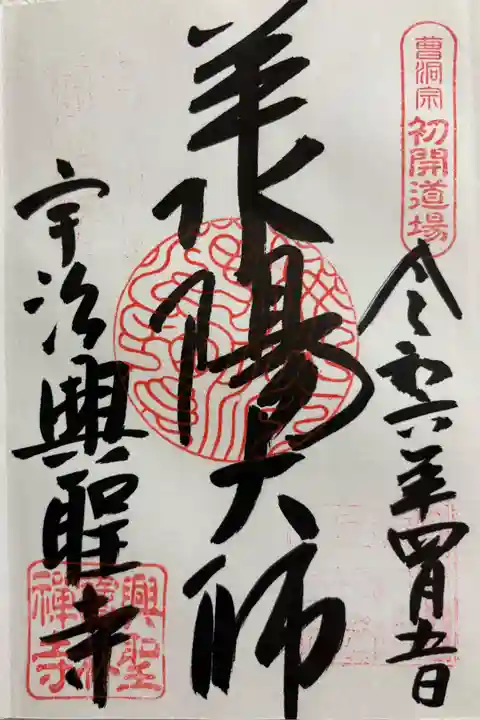 曹洞宗 初開道場
令和六年四月五日
承陽大師
宇治興聖寺
興聖
禅寺